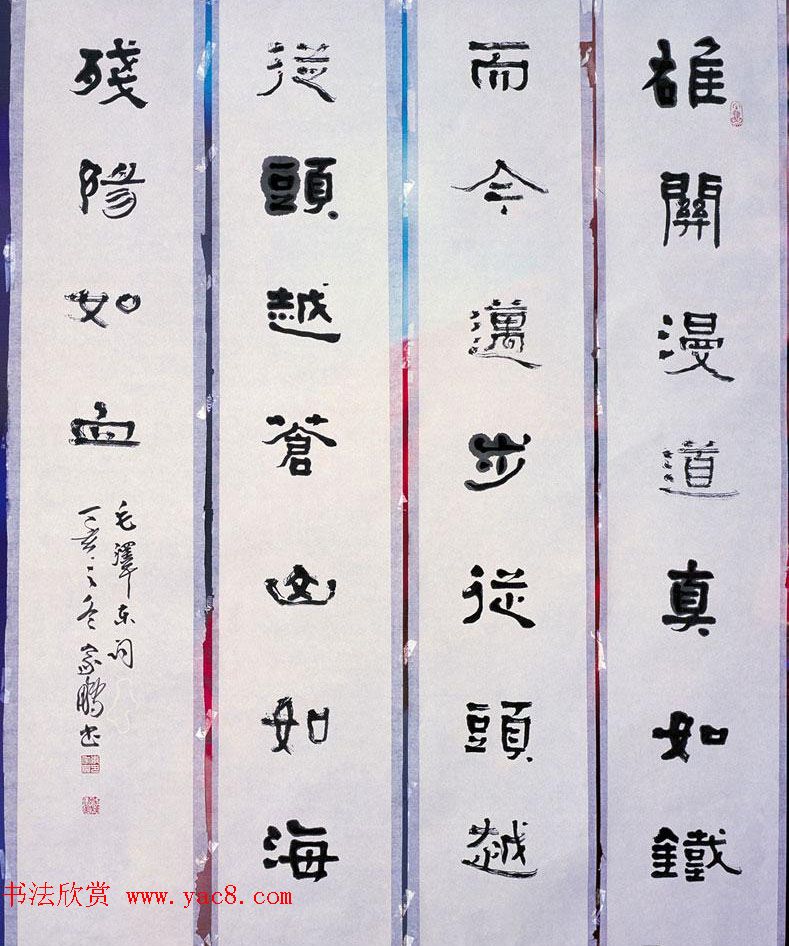 雄關漫道真如鐵
而今邁步從頭越
從頭越蒼山如海
殘陽如血
毛澤東詞
丁亥之冬家鵬书
书法欣赏 www.yac8.com